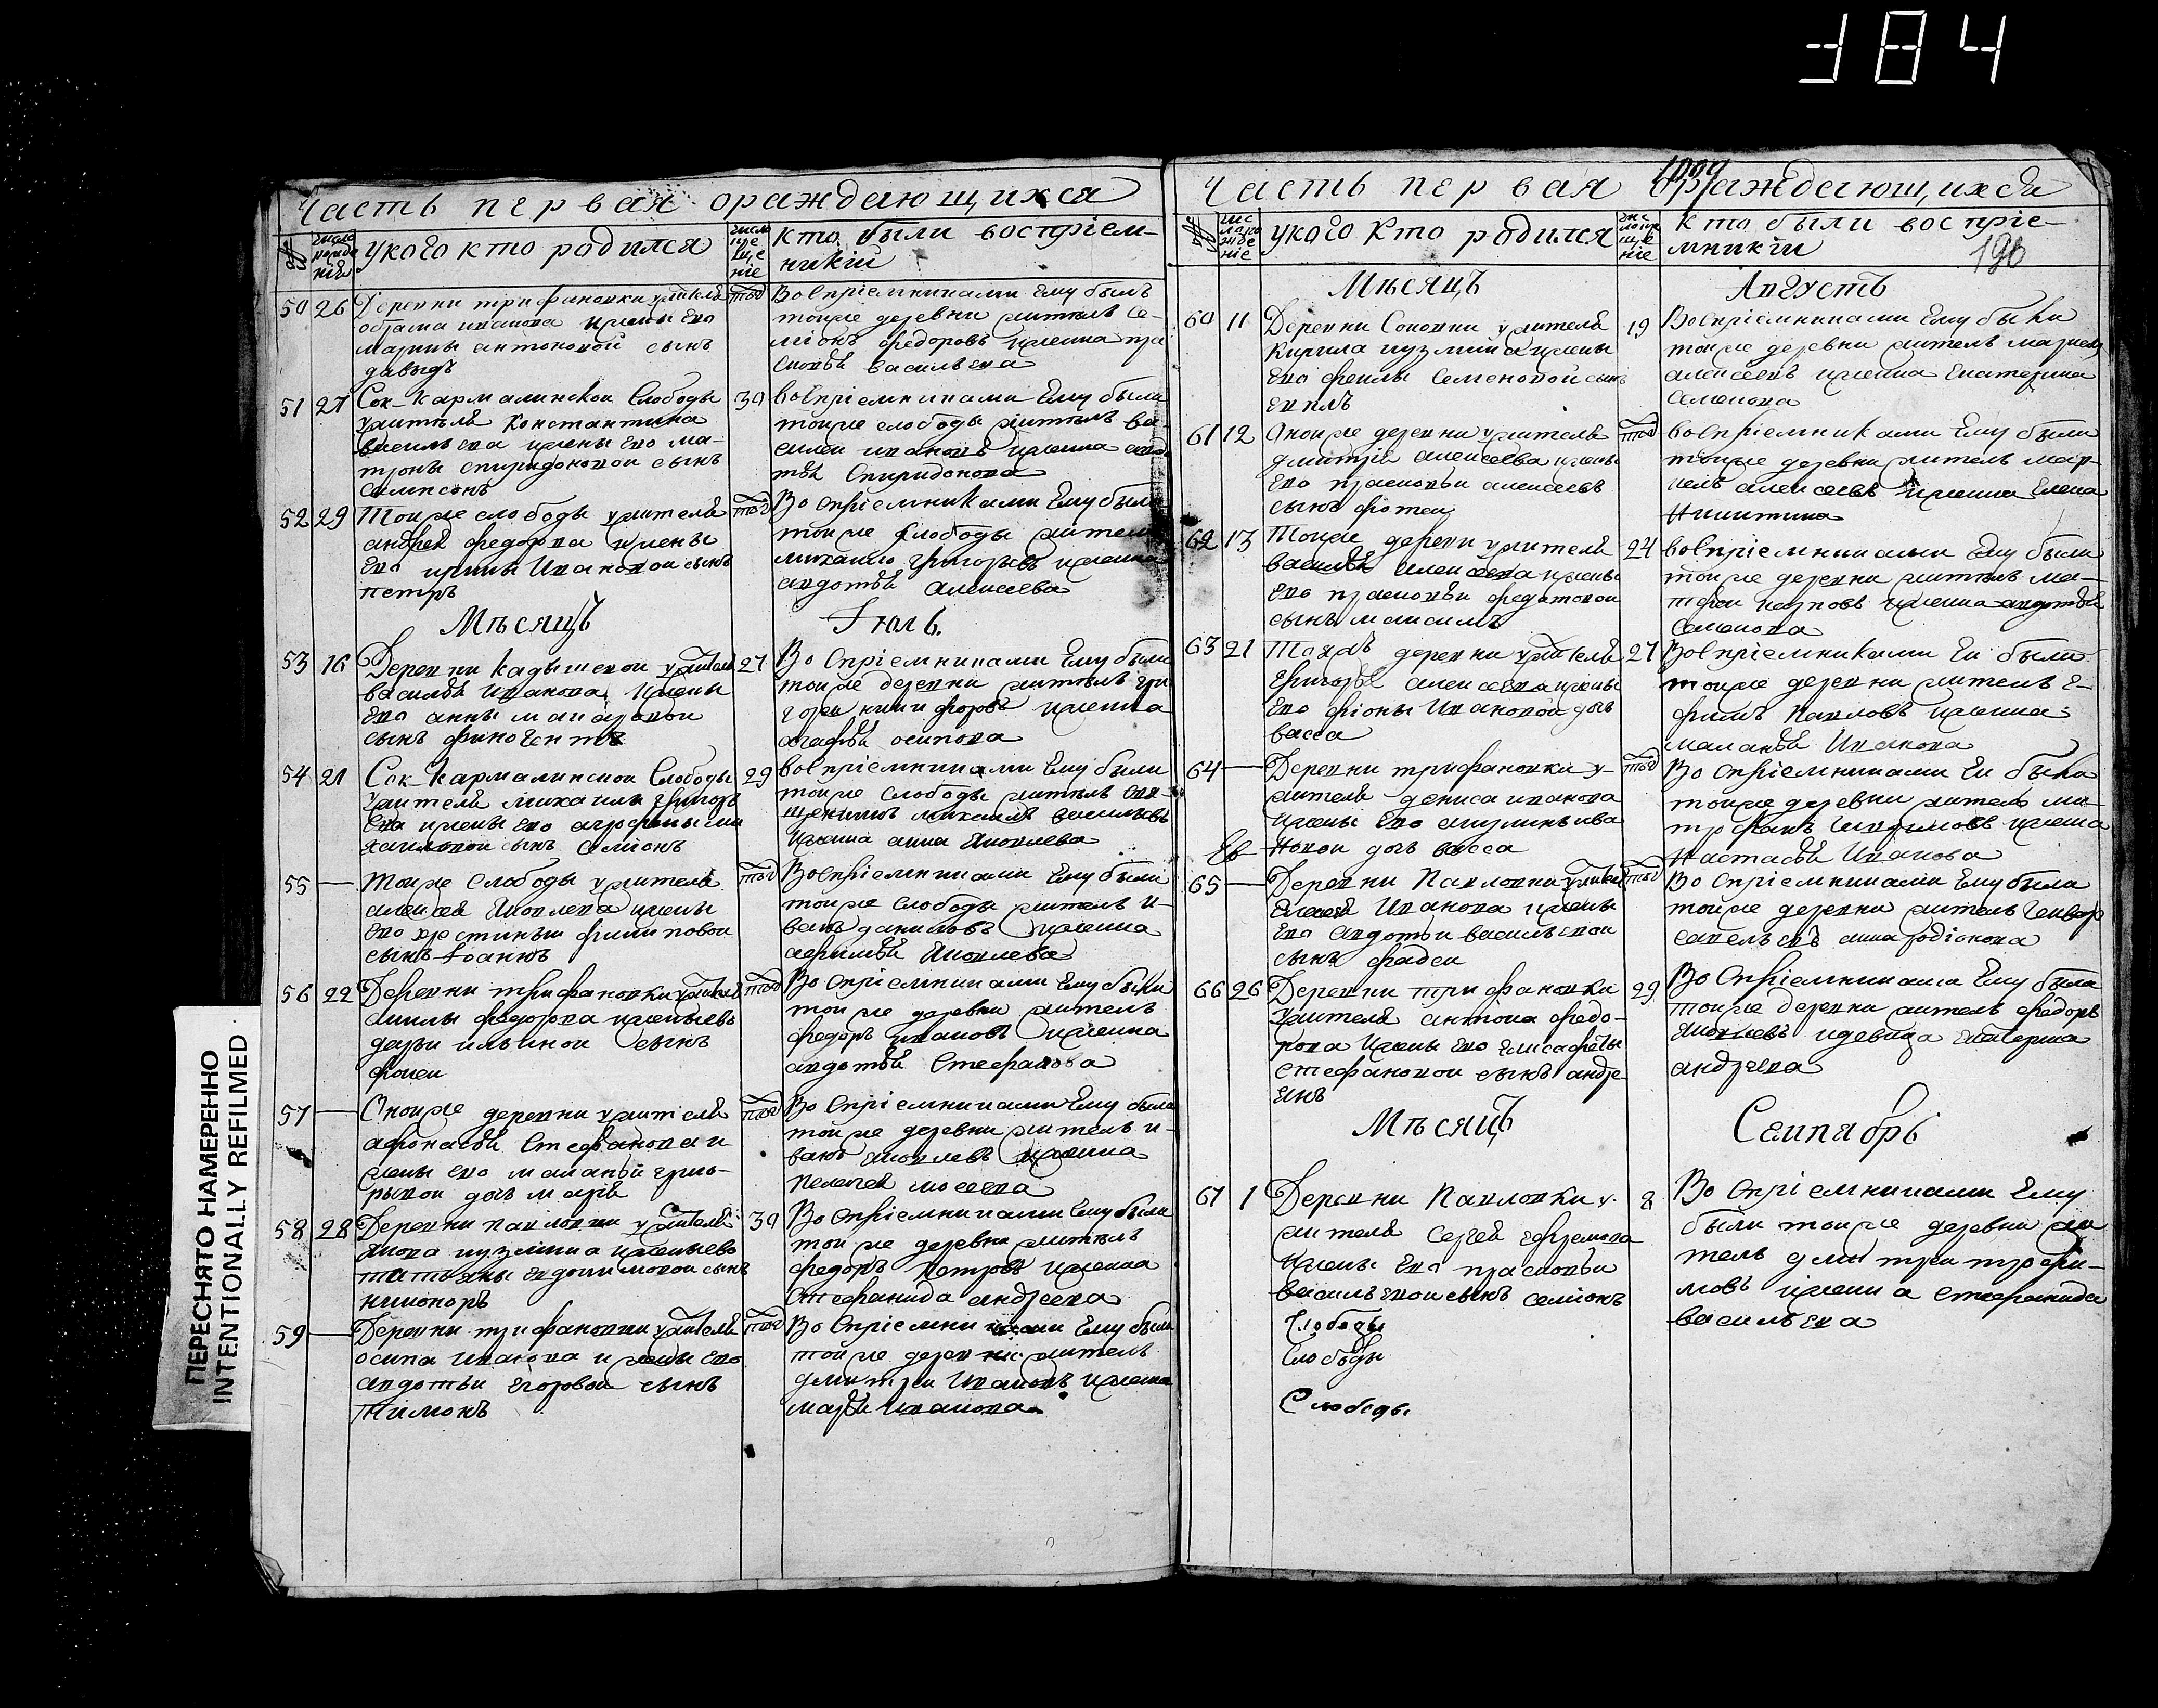 384
Часть первая ораждающихся
№
число рожде нія
укого кто родился
число кре ще ніе
кто были воспріем-
никіи
50 26 Деревни трифановки ужителя тод
Абрама иванова ижены Его
марины антоновой сынъ
давыдъ
Воспріемниками Ему былъ
тоиже деревни житель Се-
міонъ федоровъ ижениа пра
сковья васильева
51 27 Сок-кармалинской Слободы 30
ужителя Константина
васильева ижены Его ма-
троны спиридоновой сынъ
самсонъ
воспріемниками Ему были
тоиже слободы житель ва-
силеи ивановъ ижениа авдо
тья Спиридонова
52 29 Тоиже слободы ужителя тод
андрея федорова ижены
Его ирины Ивановой сынъ
петръ
Во Спріемниками Ему были
тоиже слободы житель
михаило григорьевъ ижениа
авдотья Алексеева
Мѣсяцъ Іюль
53 16 Деревни кадышевой ужителя 27
василья Иванова Ижены
Его анны макаровой
сынъ финогентъ
Во Спріемниками Ему были
тоиже деревни житель гри
гореи никифоровъ ижениа
агафья осипова
54 21 Сок-Кармалинской Слободы 29
ужителя михаила григорь
ева ижены его агрофены ми
хаиловой сынъ Семіонъ
воспріемниками Ему были
тоиже слободы житель свя-
щенникъ михаилъ васильевъ
Ижениа анна Яковлева
55 — тоиже Слободы ужителя тод
алексея Яковлева ижены
его хрестиньи филиповой
сынъ Іоаннъ
Воспріемниками Ему были
тоиже слободы житель и-
ванъ даниловъ ижениа
афимья Яковлева
56 22 Деревни трифановки ужителя тод
данилы федорова иженыево
дарьи ильиной сынъ
фокеи
Во Спріемниками Ему были
тоиже деревни житель
федоръ ивановъ ижениа
авдотья Стефанова
57 — Оноиже деревни ужителя тод
афонасья Стефанова и
жены его маланьи григо-
рьевой дочь марія
Во Спріемниками Ему были
тоиже деревни житель и-
ванъ яковлевъ ижениа
пелагея мосеева
58 28 Деревни павловки ужителя 30
Якова кузмина иженыево
татьяны Евдокимовой сынъ
никоноръ
Во Спріемниками Ему были
тоиже деревни житель
федоръ петровъ ижениа
Стефанида андреева
59 — Деревни трифановки ужителя тод
осипа иванова ижены его
авдотьи Егоровой сынъ
тимонъ
Во Спріемниками Ему были
тоиже деревни житель
дмитреи Ивановъ ижениа
марья иванова
Часть первая ораждающихся
№
укого кто родился
кто были воспріе-
мникіи
196
Мѣсяцъ Августъ
60 11 Деревни Соковки ужителя 19
Кирила кузмина ижены
Его феклы Семеновой сынъ
Воспріемниками Ему были
тоиже деревни житель маркелъ
алексеевъ ижениа Екатерина
Семенова
61 12 Оноиже деревни ужителя тод
дмитрія алексеева ижены
Его прасковьи алексеевъ
сынъ фотеи
воспріемниками Ему были
тоиже деревни житель мар-
келъ алексеевъ ижениа Елена
Никитина
62 13 Тоиже деревни ужителя 24
василья Алексеева ижены
Его прасковьи федотовой
сынъ максимъ
воспріемниками Ему были
тоиже деревни житель ма-
тфеи карповъ ижениа авдотья
Семенова
63 21 Тохъ деревни ужителя 27
Григорья алексеева ижены
Его фіоны Ивановой дочь
васса
Воспріемниками Еи были
тоиже деревни житель Е-
фимъ павловъ ижениа
маланья Иванова
64 — Деревни трифановки у- тод
жителя дениса иванова
ижены Его акулины ива
новой дочь васса
Во Спріемниками Еи были
тоиже деревни житель ми-
трофанъ Евдокимовъ ижениа
Настасья Иванова
65 — Деревни Павловки ужителя тод
Елисея Иванова ижены
Его авдотьи васильевой
сынъ фадеи
Во Спріемниками Ему были
тоиже деревни житель Григор
савельевъ анна родіонова
66 26 Деревни трифановки 29
ужителя антона федо-
рова ижены Его Елисафеты
Стефановой сынъ андре
янъ
Во Спріемниками Ему были
тоиже деревни житель федоръ
Яковлевъ идевица Екатерина
андреева
Мѣсяцъ Сентябрь
67 1 Деревни Павловки у- 8
жителя Сергея Ефремова
ижены Его прасковьи
васильевой сынъ семіонъ
Во Спріемниками Ему
были тоиже деревни жи
тель дмитреи трофи-
мовъ ижениа стефанида
васильева
Слободы
Слободы
Слободы
ПЕРЕСНЯТО НАМЕРЕННО
INTENTIONALLY REFILMED